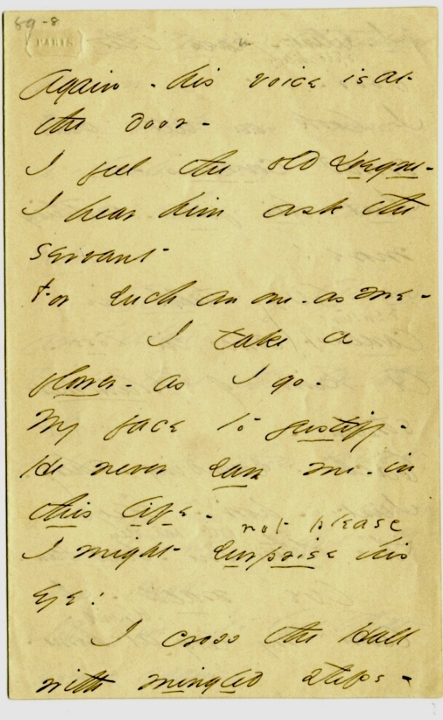 89-8
Again - his voice is at
the door -
I feel the old Degree -
I hear him ask the
servant -
For such an one - as me -
I take a
flower - as I go -
My face to justify -
He never saw me - in
this life -
not please
I might surprise his
eye!
I cross the Hall
with mingled steps -